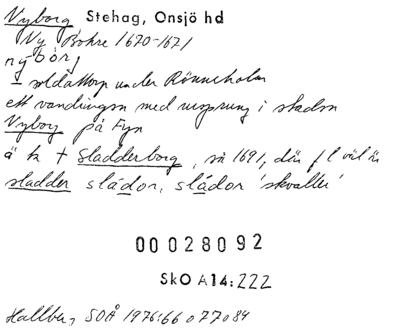 Vyborg Stehag, Onsjö hd
Ny Bohre 1670-1671
nybórj
= soldattorp under Rönneholm
ett vandringsn med ursprung i stadsn
Nyborg på Fyn
ä k † Sladderborg, så 1691, där f l väl är
sladder sládor, sládor 'skvaller'
00028092
SkO A14:222
Hallberg, SOÅ 1976:66 o 77 o 84